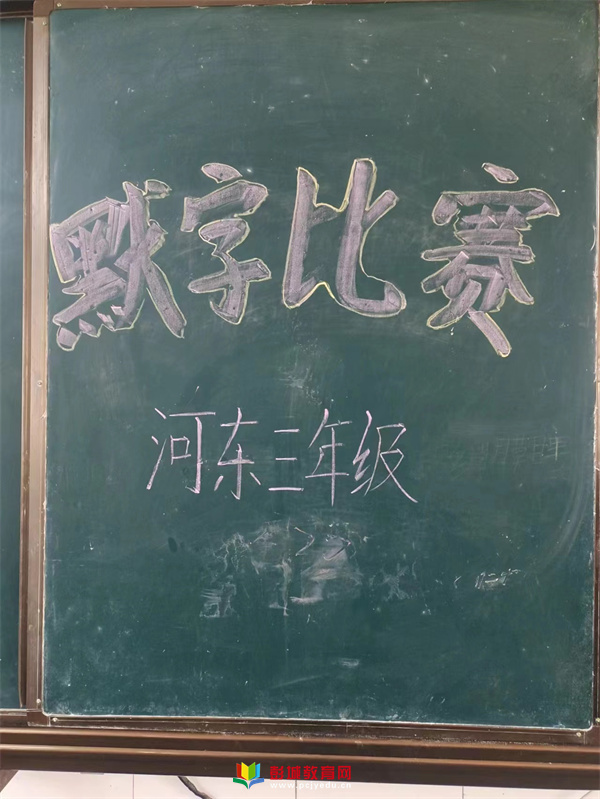 默字比赛
河东三年级
彭城教育网
www.pcjyedu.cn